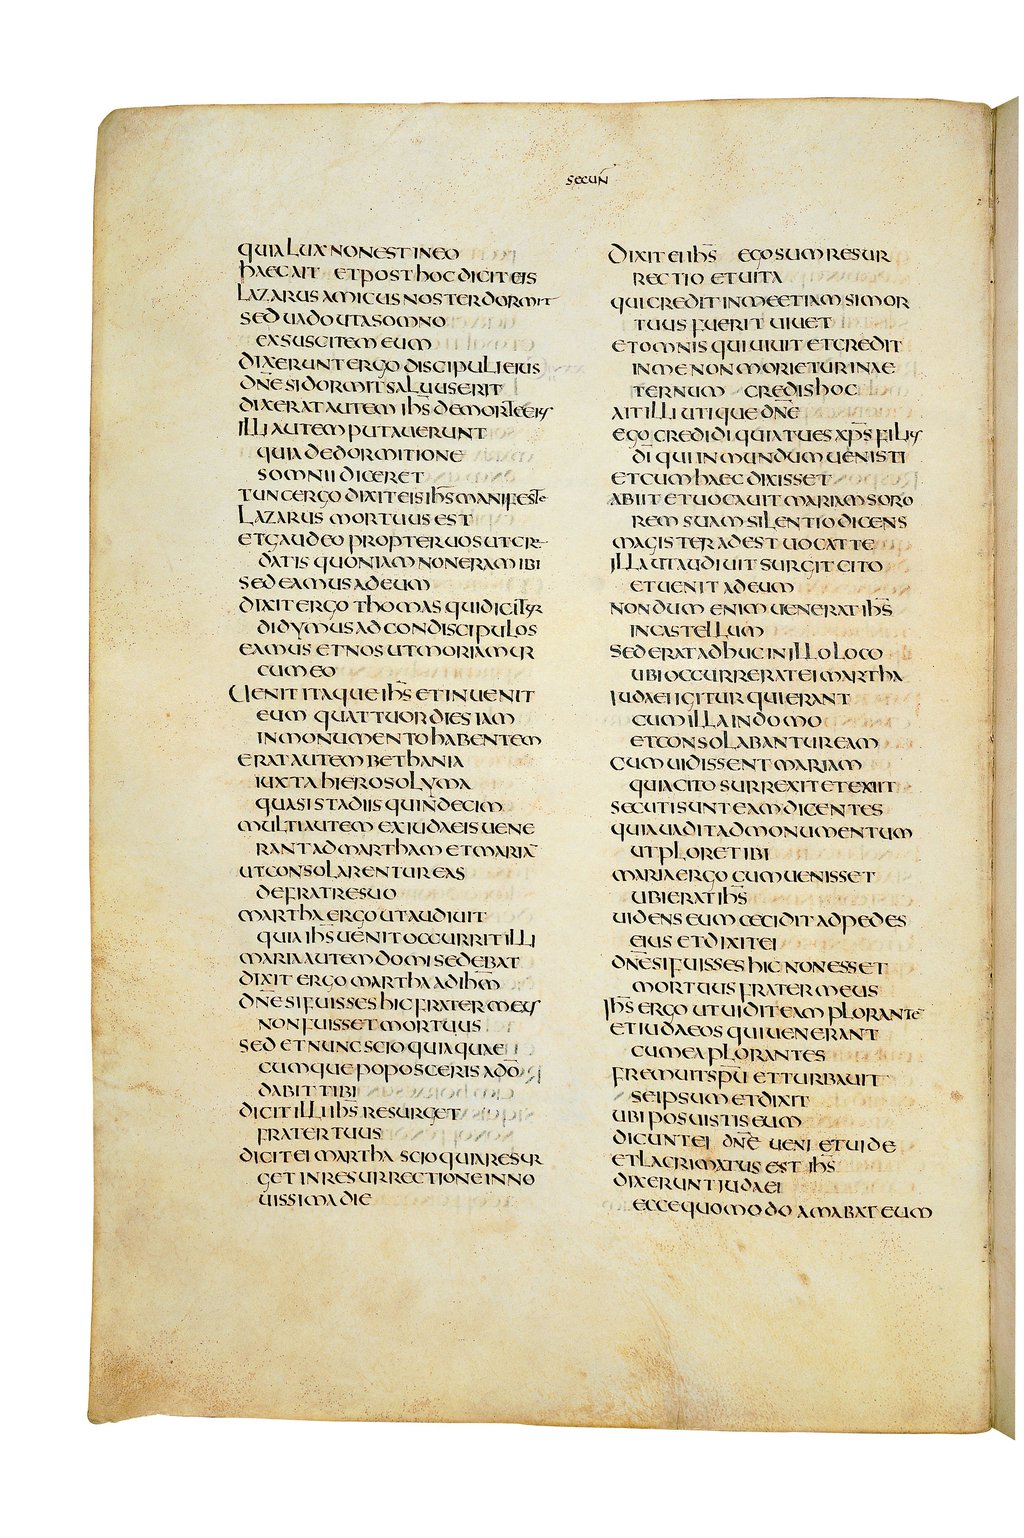 SECUN̄
QUIA LUX NON EST IN EO
HAEC AIT ET POST HOC DICIT EIS
LAZARUS AMICUS NOSTER DORMIT
SED UADO UT A SOMNO
EXSUSCITEM EUM
DIXERUNT ERGO DISCIPULI EIUS
DN̄E SI DORMIT SALUUS ERIT
DIXERAT AUTEM IHS̄ DE MORTE EIUS
ILLI AUTEM PUTAUERUNT
QUIA DE DORMITIONE
SOMNII DICERET
TUNC ERGO DIXIT EIS IHS̄ MANIFESTE
LAZARUS MORTUUS EST
ET GAUDEO PROPTER UOS UT CRE
DATIS QUONIAM NON ERAM IBI
SED EAMUS AD EUM
DIXIT ERGO THOMAS QUI DICITUR
DIDYMUS AD CONDISCIPULOS
EAMUS ET NOS UT MORIAMUR
CUM EO
UENIT ITAQUE IHS̄ ET INUENIT
EUM QUATTUOR DIES IAM
IN MONUMENTO HABENTEM
ERAT AUTEM BETHANIA
IUXTA HIEROSOLYMA
QUASI STADIIS QUINDECIM
MULTI AUTEM EX IUDAEIS UENE
RANT AD MARTHAM ET MARIĀ
UT CONSOLARENTUR EAS
DE FRATRE SUO
MARTHA ERGO UT AUDIUIT
QUIA IHS̄ UENIT OCCURRIT ILLI
MARIA AUTEM DOMI SEDEBAT
DIXIT ERGO MARTHA AD IHM̄
DN̄E SI FUISSES HIC FRATER MEUS
NON FUISSET MORTUUS
SED ET NUNC SCIO QUIA QUAE
CUMQUE POPOSCERIS A DŌ
DABIT TIBI
DICIT ILLI IHS̄ RESURGET
FRATER TUUS
DICIT EI MARTHA SCIO QUIA RESUR
GET IN RESURRECTIONE IN NO
UISSIMA DIE
DIXIT EI IHS̄ EGO SUM RESUR
RECTIO ET UITA
QUI CREDIT IN ME ETIAM SI MOR
TUUS FUERIT UIUET
ET OMNIS QUI UIUIT ET CREDIT
IN ME NON MORIETUR IN AE
TERNUM CREDIS HOC
AIT ILLI UTIQUE DN̄E
EGO CREDIDI QUIA TU ES XPS̄ FILIUS
DĪ QUI IN MUNDUM UENISTI
ET CUM HAEC DIXISSET
ABIIT ET UOCAUIT MARIAM SORO
REM SUAM SILENTIO DICENS
MAGISTER ADEST UOCAT TE
ILLA UT AUDIUIT SURGIT CITO
ET UENIT AD EUM
NONDUM ENIM UENERAT IHS̄
IN CASTELLUM
SED ERAT ADHUC IN ILLO LOCO
UBI OCCURRERAT EI MARTHA
IUDAEI IGITUR QUI ERANT
CUM ILLA IN DOMO
ET CONSOLABANTUR EAM
CUM UIDISSENT MARIAM
QUIA CITO SURREXIT ET EXIIT
SECUTI SUNT EAM DICENTES
QUIA UADIT AD MONUMENTUM
UT PLORET IBI
MARIA ERGO CUM UENISSET
UBI ERAT IHS̄
UIDENS EUM CECIDIT AD PEDES
EIUS ET DIXIT EI
DN̄E SI FUISSES HIC NON ESSET
MORTUUS FRATER MEUS
IHS̄ ERGO UT UIDIT EAM PLORANTE
ET IUDAEOS QUI UENERANT
CUM EA PLORANTES
FREMUIT SPŪ ET TURBAUIT
SE IPSUM ET DIXIT
UBI POSUISTIS EUM
DICUNT EI DN̄E UENI ET UIDE
ET LACRIMATUS EST IHS̄
DIXERUNT IUDAEI
ECCE QUOMODO AMABAT EUM